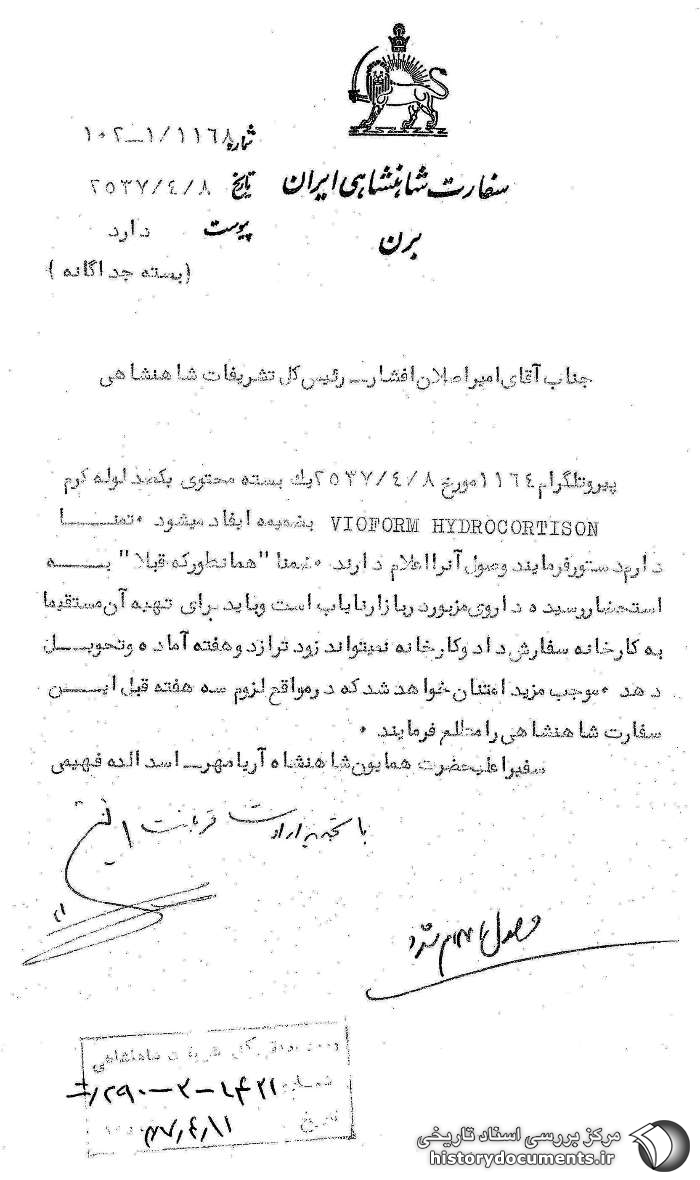 شماره ۱۰۲ــ۱/۱۱٦۸
تاریخ ۲۵۳۷/٤/۸
پیوست دارد
(بسته جداگانه)
سفارت شاهنشاهی ایران
برن
جناب آقای امیراصلان افشارــ رئیس کل تشریفات شاهنشاهی
پیروتلگرام ۱۱٦٤مورخ ۲۵۳۷/٤/۸یك بسته محتوی یکصد لوله کرم
VIOFORM HYDROCORTISON بضمیمه ایفاد میشود ۰تمنــــا
دارم‌دستورفرمایند وصول آنرا اعلام دارند ۰ضمنا "همانطورکه قبلا" بــــه
استحضاررسیده داروی مزبوردربازارنایاب است وباید برای تهیه آن مستقیما
به کارخانه سفارش داد وکارخانه نمیتواند زود ترازدوهفته آماده وتحویــــل
دهد ۰موجب مزید امتنان خواهد شد که درمواقع لزوم سه هفته قبل ایــــن
سفارت شاهنشاهی رامطلع فرمایند ۰
سفیراعلیحضرت همایون شاهنشاه آریامهرــ اسد الله فهیمی
با تجدید ارادت قربانت
وصول اعلام شود
شماره ۲۹۰-۳-۱۴۲۱
تاریخ ۳۷٫۴٫۱۱
مرکز بررسی اسناد تاریخی
historydocuments.ir